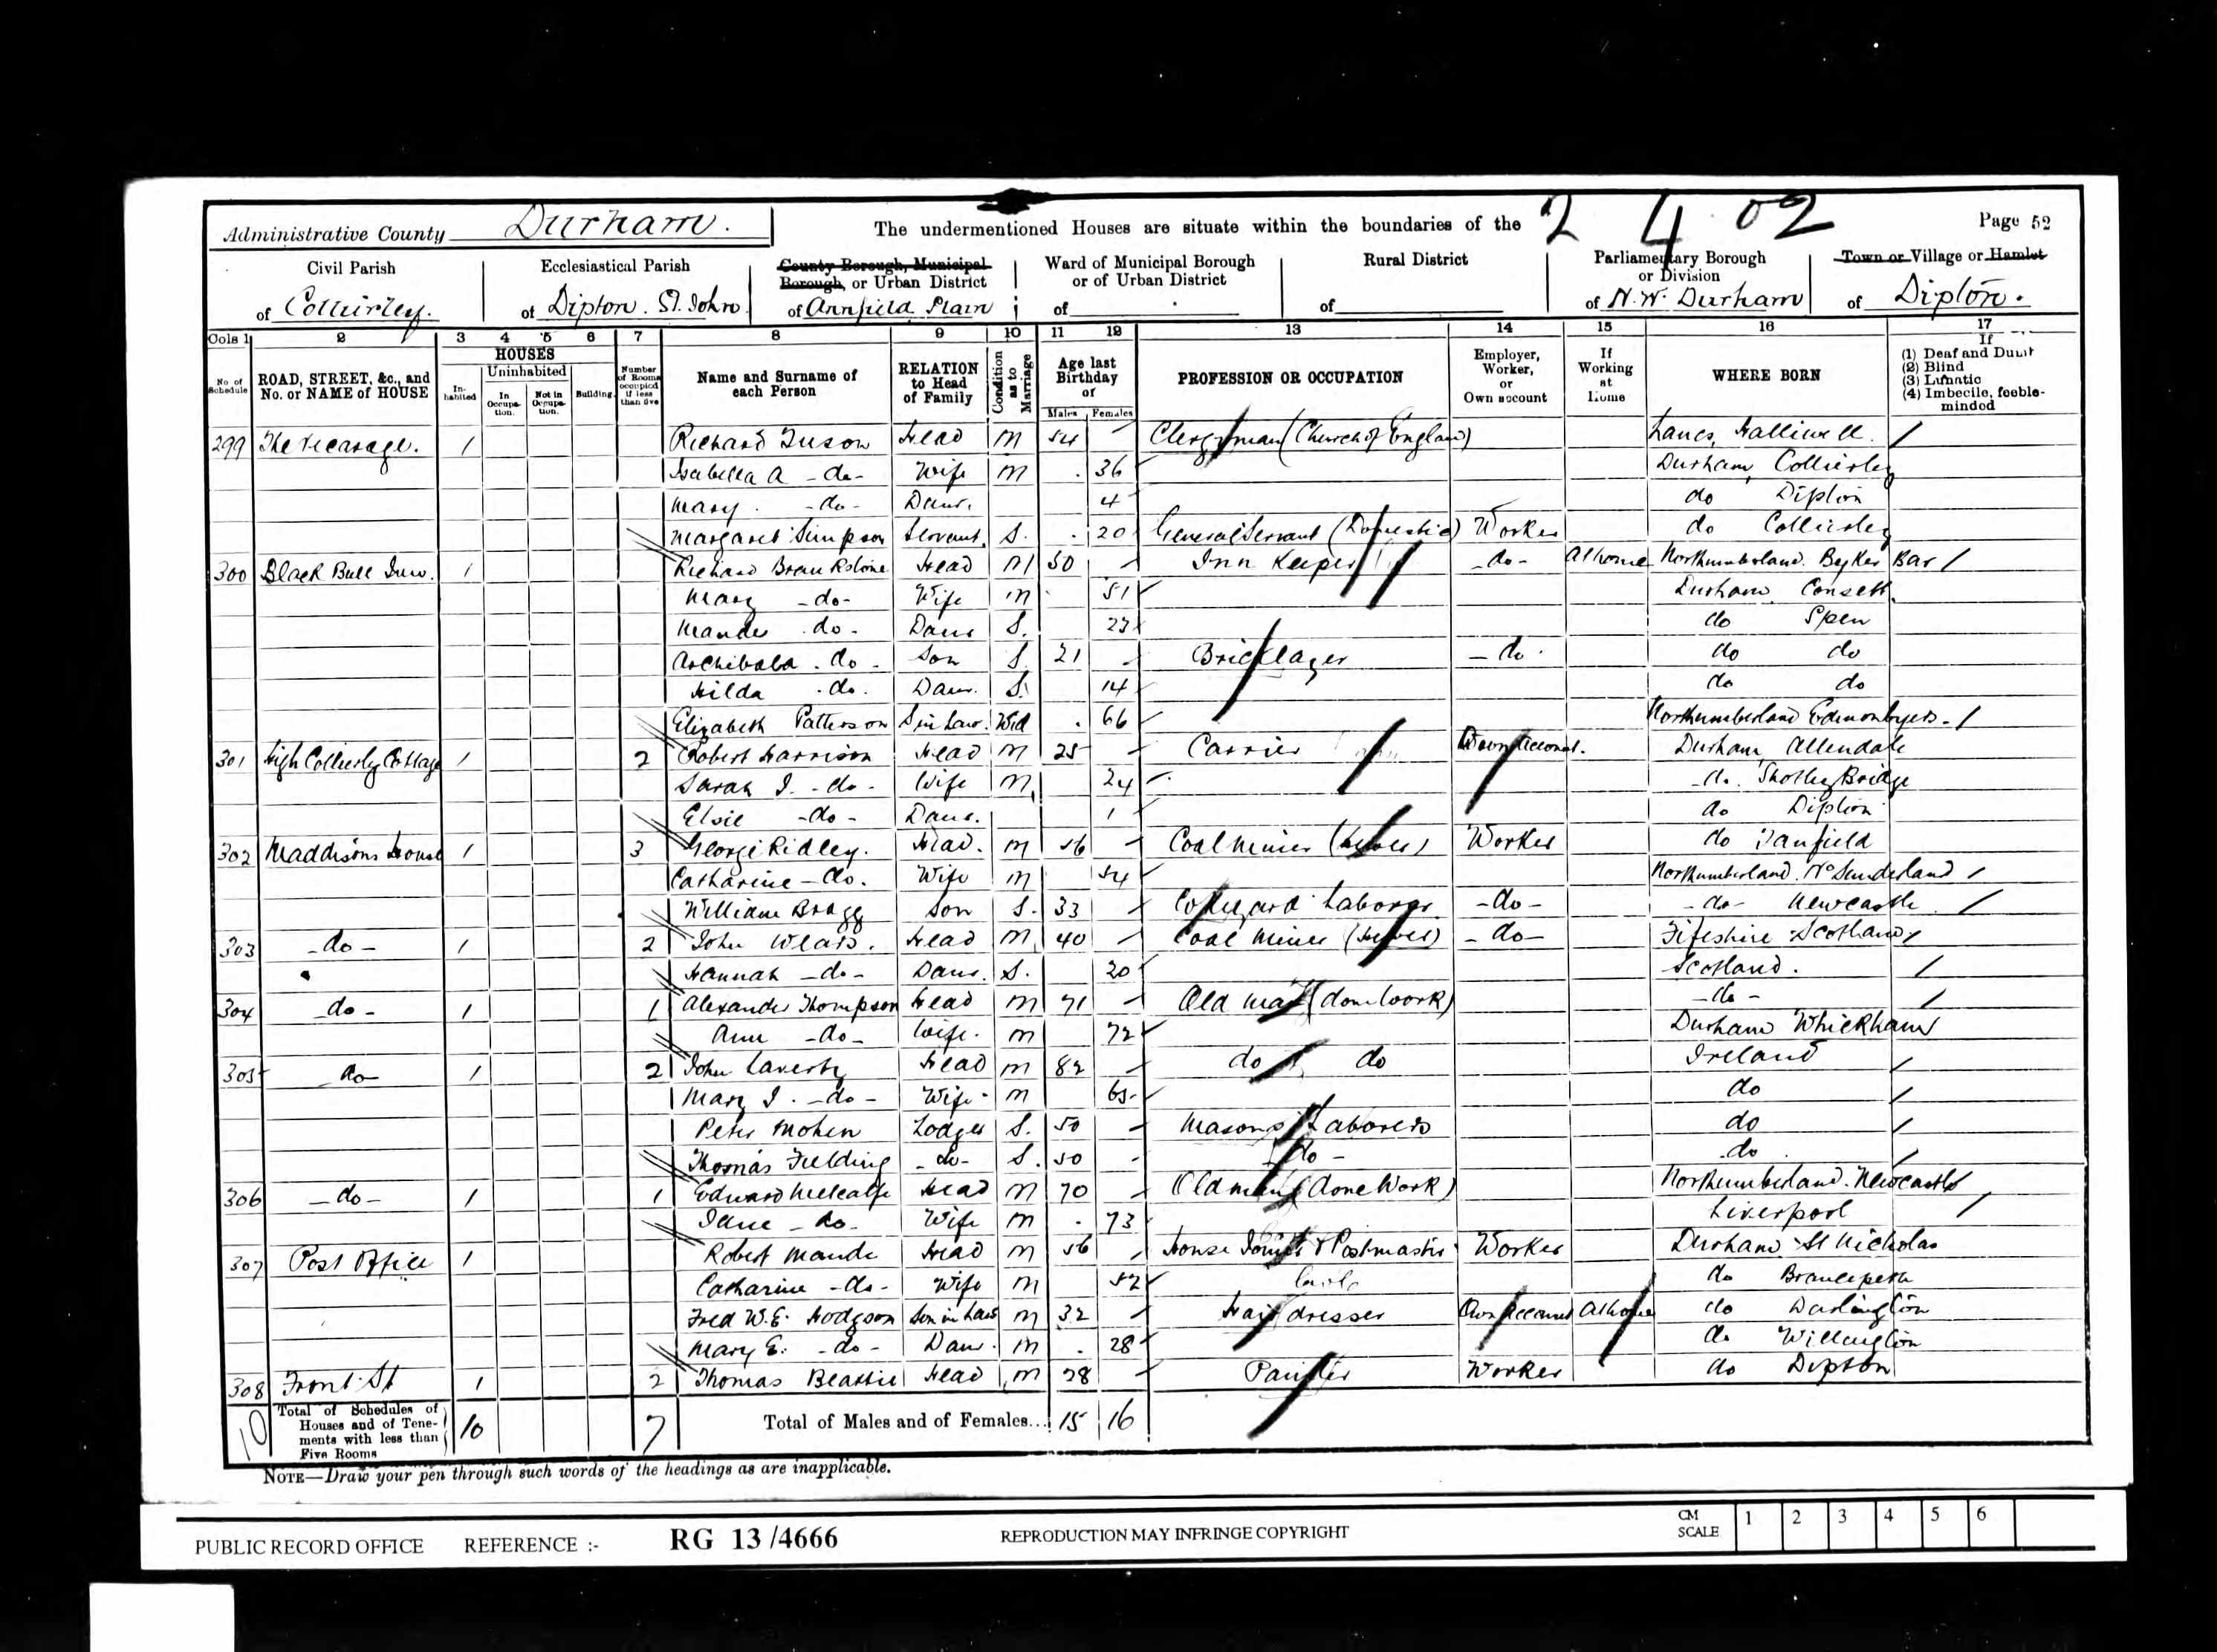 Administrative County Durham. The undermentioned Houses are situate within the boundaries of the 2 4 02 Page 52
Civil Parish Ecclesiastical Parish County Borough, Municipal Borough, or Urban District Ward of Municipal Borough or of Urban District Rural District Parliamentary Borough or Division Town or Village or Hamlet
of Collierley. of Dipton. St. John of Annfield Plain of of of N.W. Durham of Dipton.
Cols 1 2 3 4 5 6 7 8 9 10 11 12 13 14 15 16 17
No of Schedule ROAD, STREET, &c., and No. or NAME of HOUSE HOUSES Inhabited Uninhabited In Occupation. Not in Occupation. Building. Number of Rooms occupied if less than five Name and Surname of each Person RELATION to Head of Family Condition as to Marriage Age last Birthday of Males Females PROFESSION OR OCCUPATION Employer, Worker, or Own account If Working at Home WHERE BORN If (1) Deaf and Dumb (2) Blind (3) Lunatic (4) Imbecile, feeble-minded
299 The Vicarage. 1 Richard Tuson Head M 54 Clergyman (Church of England) Lancs, Halliwell
Isabella A -do- Wife M 36 Durham Collierley
Mary -do- Daur. 4 do Dipton
Margaret Simpson Servant S. 20 General Servant (Domestic) Worker do Collierley
300 Black Bull Inn. 1 Richard Head M 50 Inn Keeper -do- At home Northumberland. Byker Bar
Mary -do- Wife M 51 Durham Consett
do- Daur S. 23 do Spen
Archibald do- Son S 21 Bricklayer -do- do do
Hilda do. Daur. S. 14 do do
Elizabeth Patterson S in Law. Wid 66 Northumberland Edmonbyers
301 High Collierly Cottage 1 2 Robert Harrison Head M 25 Carrier Own Account. Durham Allendale
Sarah J. -do- Wife M 24 do. Shotley Bridge
Elsie -do- Daur. 1 do Dipton
302 Maddisons House 1 3 George Ridley. Head. M 56 Coal Miner (hewer) Worker do Tanfield
Catharine -do. Wife M 54 Northumberland. No Sunderland
William Bragg Son S. 33 Cokeyard Laborer -do- -do- Newcastle
303 -do- 1 2 John Head M 40 Coal Miner (hewer) -do- Fifeshire Scotland
Hannah -do- Daur. S. 20 Scotland.
304 -do- 1 1 Alexander Thompson Head M 71 Old Man (done work) -do-
Ann -do- Wife. M 72 Durham Whickham
305 do 1 2 John Laverty Head M 82 do do Ireland
Mary J. -do- Wife M 65 do
Peter Mohen Lodger S. 50 Masons Laborers do
Thomas Fielding -do- S. 50 do - do
306 -do- 1 1 Edward Metcalfe Head M 70 Old man (done Work) Northumberland. Newcastle
Jane -do- Wife M 73 Liverpool
307 Post Office 1 Robert Maude Head M 56 House Joiner & Postmaster Worker Durham St Nicholas
Catharine -do- Wife M 52 do Brancepeth
Fred W.E. Hodgson Son in Law M 32 Hair dresser Own Account At home do Darlington
Mary E. -do- Daur. M 28 do Willington
308 Front St 1 2 Thomas Beattie Head M 28 Painter Worker do Dipton
10 Total of Schedules of Houses and of Tenements with less than Five Rooms 10 7 Total of Males and of Females... 15 16
NOTE—Draw your pen through such words of the headings as are inapplicable.
PUBLIC RECORD OFFICE REFERENCE :- RG 13 /4666 REPRODUCTION MAY INFRINGE COPYRIGHT CM SCALE 1 2 3 4 5 6